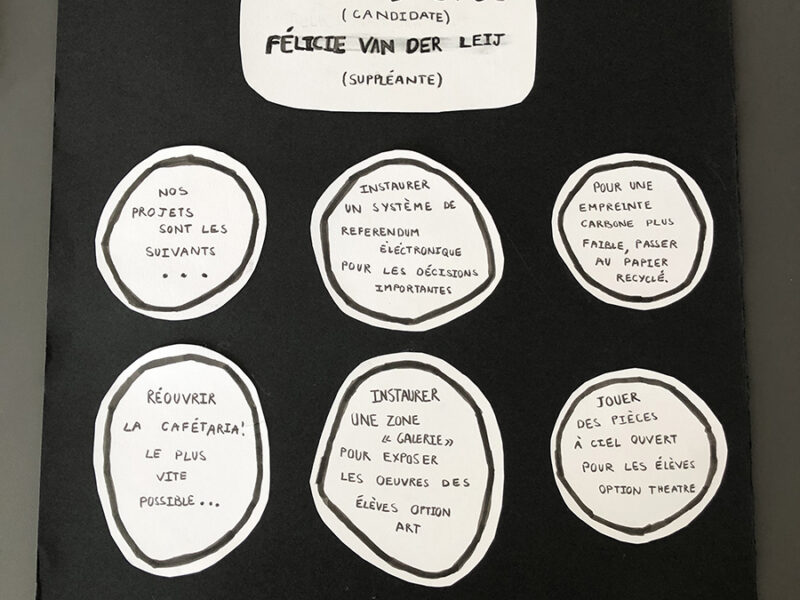 (CANDIDATE)
FÉLICIE VAN DER LEIJ
(SUPPLÉANTE)
NOS
PROJETS
SONT LES
SUIVANTS
...
INSTAURER
UN SYSTÈME DE
REFERENDUM
ÈLÉCTRONIQUE
POUR LES DÉCISIONS
IMPORTANTES
POUR UNE
EMPREINTE
CARBONE PLUS
FAIBLE, PASSER
AU PAPIER
RECYCLÉ.
RÉOUVRIR
LA CAFÉTARIA!
LE PLUS
VITE
POSSIBLE...
INSTAURER
UNE ZONE
« GALERIE »
POUR EXPOSER
LES OEUVRES DES
ÉLÈVES OPTION
ART
JOUER
DES PIÈCES
À CIEL OUVERT
POUR LES ÉLÈVES
OPTION THEATRE